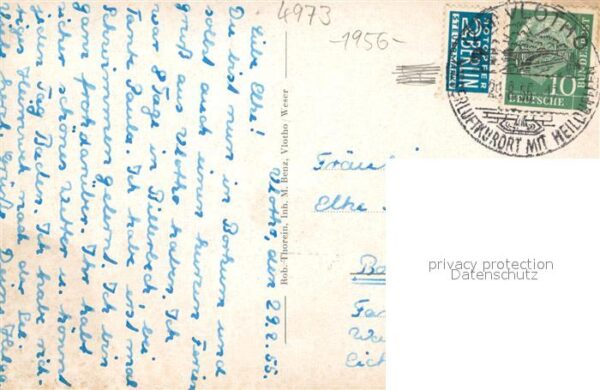 4973
-1956-
NOTOPFER
2 BERLIN
STEUERMARKE
VLOTHO
29.8.55
LUFTKURORT MIT HEILQUELLEN
10
DEUTSCHE
BUNDESPOST
Vlotho, den 29.8.55.
Liebe Elke!
Du bist nun in Borkum und
sollst auch einen kurzen Ferien
gruß aus Vlotho haben. Ich
war 8 Tage in Billerbeck bei
Tante Paula. Ich habe erst mal
Schwimmen gelernt. Ich bin
ganz froh darüber. Ihr habt
sicher schönes Wetter u. könnt
jeden Tag Baden. Ich habe
nach
Grüße Deine Helga
Rob. Thorein, Inh. M. Benz, Vlotho/Weser
Fräu
Elke
Ba
Fa
We
Eich
privacy protection
Datenschutz